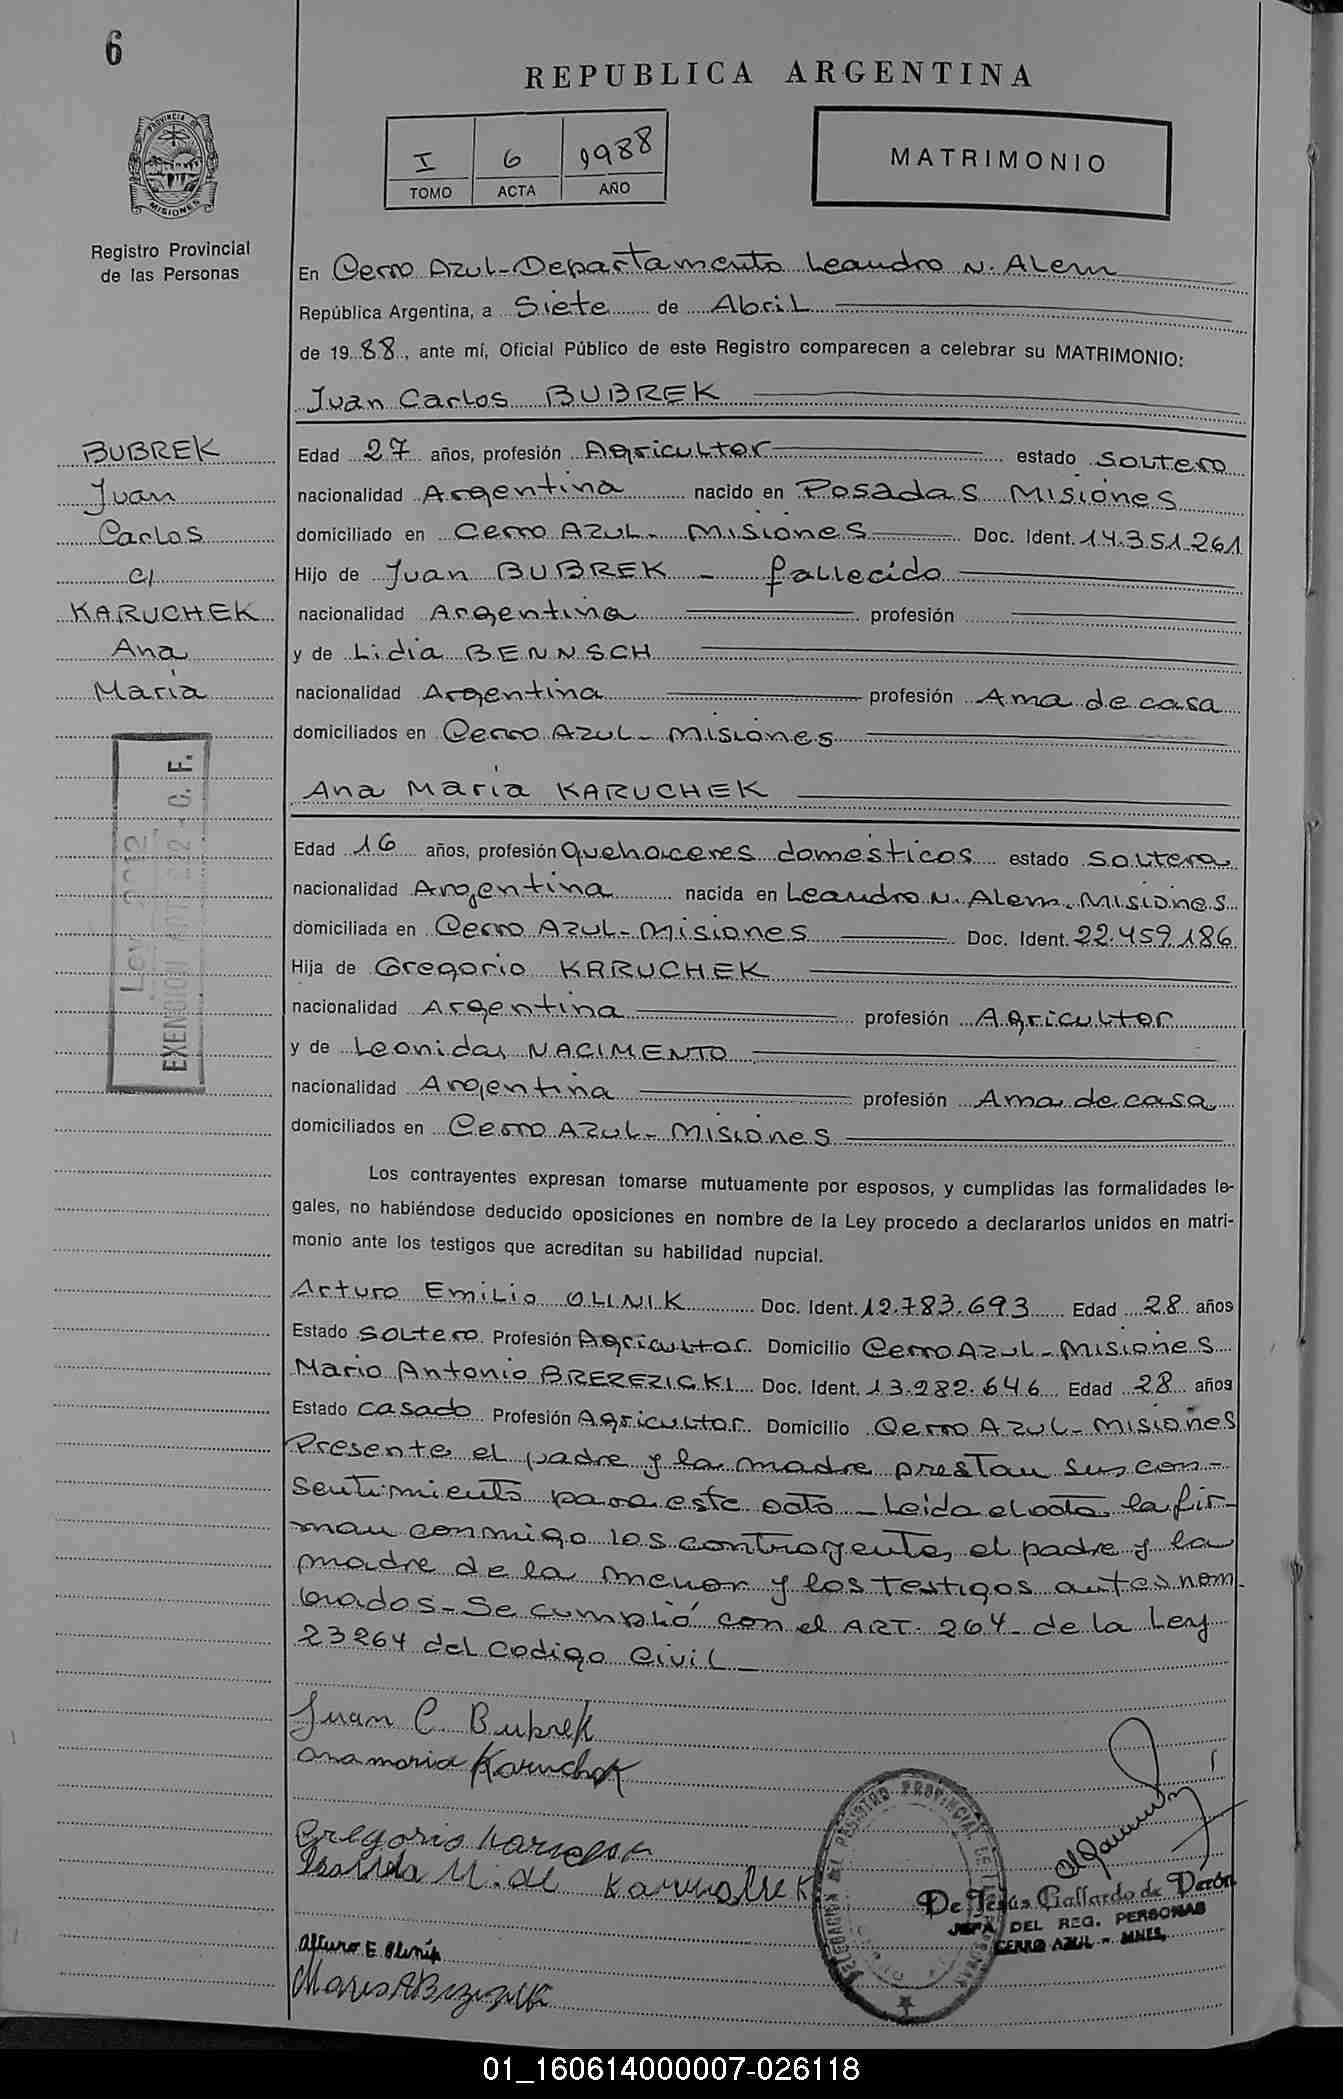 6
REPUBLICA ARGENTINA
I 6 1988
TOMO ACTA AÑO
MATRIMONIO
PROVINCIA DE
MISIONES
Registro Provincial
de las Personas
En Cerro Azul-Departamento Leandro N. Alem
República Argentina, a Siete de Abril
de 1988, ante mí, Oficial Público de este Registro comparecen a celebrar su MATRIMONIO:
Juan Carlos BUBREK
BUBREK
Juan
Carlos
c/
KARUCHEK
Ana
Maria
Edad 27 años, profesión Agricultor estado soltero
nacionalidad Argentina nacido en Posadas Misiones
domiciliado en Cerro Azul- Misiones Doc. Ident. 14.351.261
Hijo de Juan BUBREK - fallecido
nacionalidad Argentina profesión
y de Lidia BENNSCH
nacionalidad Argentina profesión Ama de casa
domiciliados en Cerro Azul- Misiones
Ana Maria KARUCHEK
Edad 16 años, profesión Quehaceres domésticos estado soltera
nacionalidad Argentina nacida en Leandro N. Alem. Misiones
domiciliada en Cerro Azul-Misiones Doc. Ident. 22.459.186
Hija de Gregorio KARUCHEK
nacionalidad Argentina profesión Agricultor
y de Leonidas NACIMENTO
nacionalidad Argentina profesión Ama de casa
domiciliados en Cerro Azul- Misiones
Los contrayentes expresan tomarse mutuamente por esposos, y cumplidas las formalidades le-
gales, no habiéndose deducido oposiciones en nombre de la Ley procedo a declararlos unidos en matri-
monio ante los testigos que acreditan su habilidad nupcial.
Arturo Emilio OLINIK Doc. Ident. 12.783.693 Edad 28 años
Estado soltero Profesión Agricultor Domicilio Cerro Azul- Misiones
Mario Antonio BREREZICKI Doc. Ident. 13.282.646 Edad 28 años
Estado casado Profesión Agricultor Domicilio Cerro Azul- Misiones
Presente el padre y la madre prestan sus con-
sentimiento para este acto - Leida el acta la fir-
man conmigo los contrayentes, el padre y la
madre de la menor y los testigos antes nom
brados- Se cumplió con el ART. 264- de la Ley
23264 del Codigo Civil-
Juan C. Bubrek
ana maria Karuchek
Gregorio Karuchek
M. de Karuchek
Arturo E. Olinik
De Jesús Gallardo de Verón
JEFA DEL REG. PERSONAS
CERRO AZUL - MNES.
DELEGACION DEL REGISTRO PROVINCIAL DE LAS PERSONAS
EXENCION
01_160614000007-026118